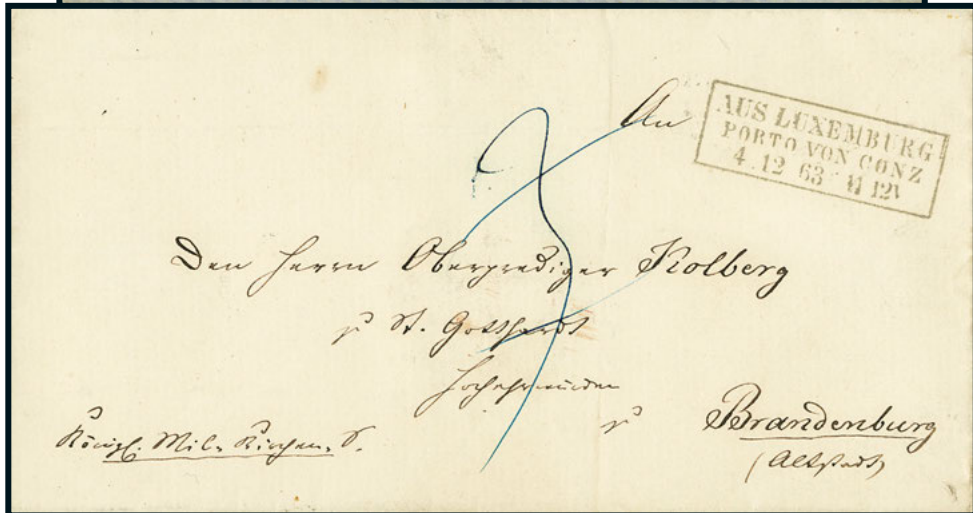 An
AUS LUXEMBURG
PORTO VON CONZ
4 12 63 11 12¼
3
Den Herrn Oberprediger Kolberg
zu St. Gotthardt
Hochehrwürden
zu Brandenburg
(Altstadt)
Königl. Mil. Kirchen. S.